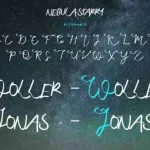 NEBULA STARRY
ALTERNATE
A B C D E F G H I J K L M N
O P Q R S T U V W X Y Z
WOLLER - WOLLE
JONAS - JONAS